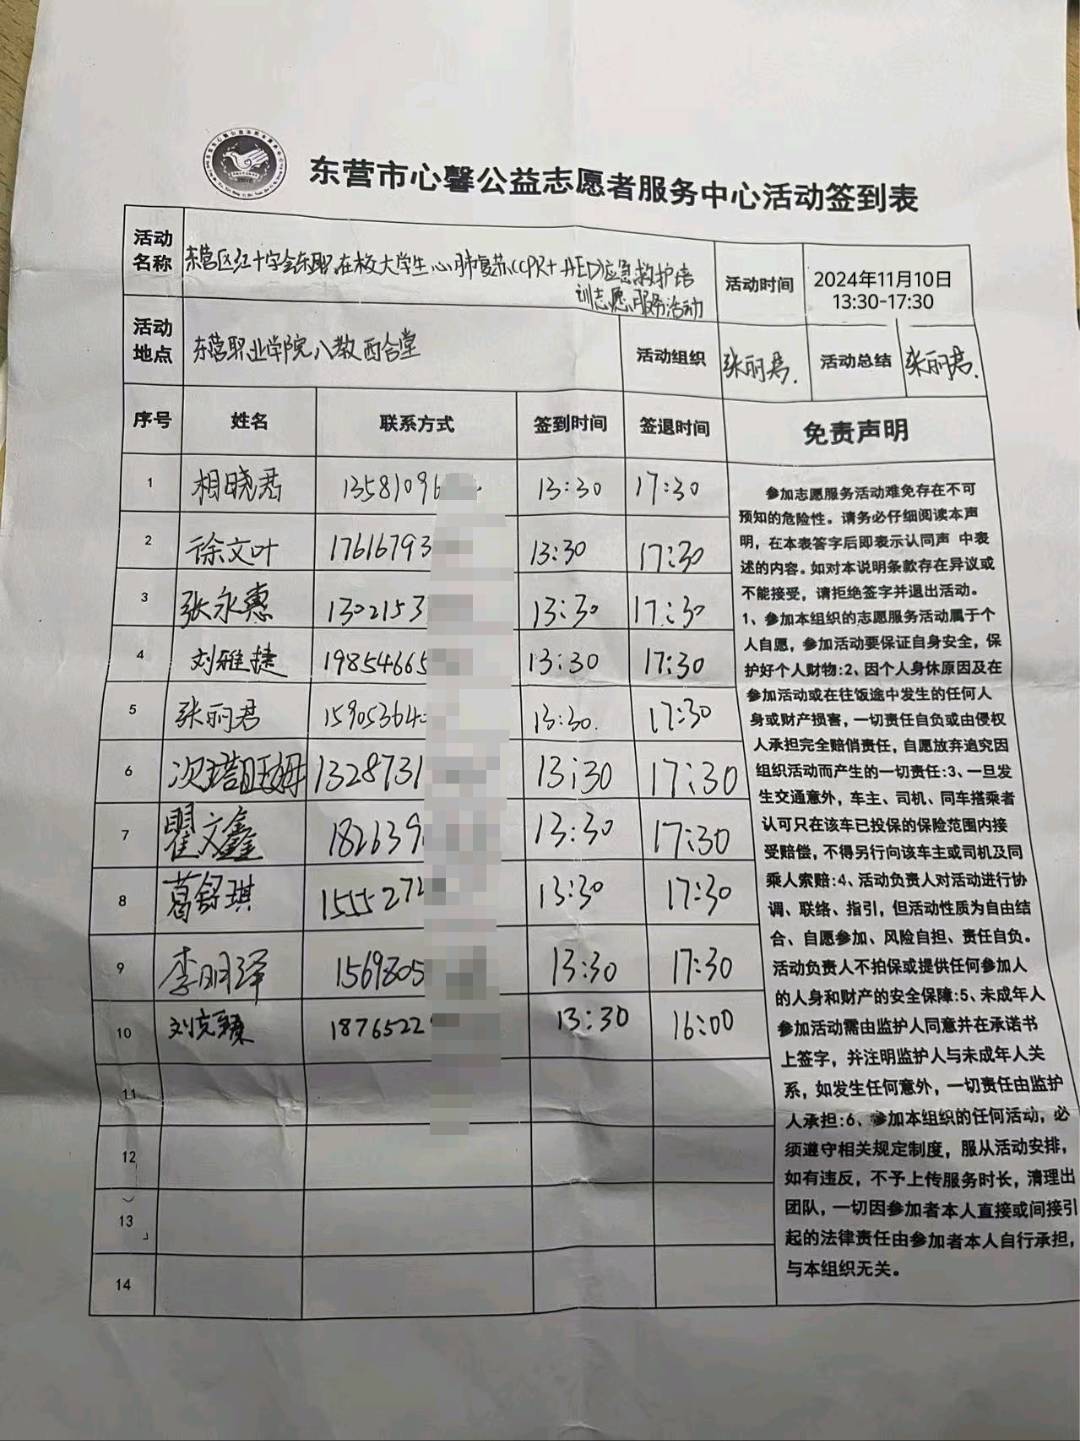 东营市心馨公益志愿者服务中心活动签到表
活动名称 东营区红十字会东职在校大学生心肺复苏(CPR+AED)应急救护培
训志愿服务活动
活动时间 2024年11月10日
13:30-17:30
活动地点 东营职业学院八教西合堂 活动组织 张丽君. 活动总结 张丽君.
序号 姓名 联系方式 签到时间 签退时间
1 相晓君 13581096 13:30 17:30
2 徐文叶 17616793 13:30 17:30
3 张永惠 1302153 13:30 17:30
4 刘雅捷 19854665 13:30 17:30
5 张丽君 15905364 13:30. 17:30
6 次塔旺姆 1328731 13:30 17:30
7 瞿文鑫 182639 13:30 17:30
8 葛舒琪 1555272 13:30 17:30
9 李明泽 1569805 13:30 17:30
10 刘克臻 18765229 13:30 16:00
11
12
13
14
免责声明
参加志愿服务活动难免存在不可
预知的危险性。请务必仔细阅读本声
明，在本表答字后即表示认同声 中表
述的内容。如对本说明条款存在异议或
不能接受，请拒绝签字并退出活动。
1、参加本组织的志愿服务活动属于个
人自愿，参加活动要保证自身安全，保
护好个人财物:2、因个人身休原因及在
参加活动或在往饭途中发生的任何人
身或财产损害，一切责任自负或由侵权
人承担完全赔俏责任，自愿放弃追究因
组织活动而产生的一切责任:3、一旦发
生交通意外，车主、司机、同车搭乘者
认可只在该车已投保的保险范围内接
受赔偿，不得另行向该车主或司机及同
乘人索赔:4、活动负责人对活动进行协
调、联络、指引，但活动性质为自由结
合、自愿参加、风险自担、责任自负。
活动负责人不拍保或提供任何参加人
的人身和财产的安全保障:5、未成年人
参加活动需由监护人同意并在承诺书
上签字，并注明监护人与未成年人关
系，如发生任何意外，一切责任由监护
人承担:6、参加本组织的任何活动，必
须遵守相关规定制度，服从活动安排，
如有违反，不予上传服务时长，清理出
团队，一切因参加者本人直接或间接引
起的法律责任由参加者本人自行承担，
与本组织无关。